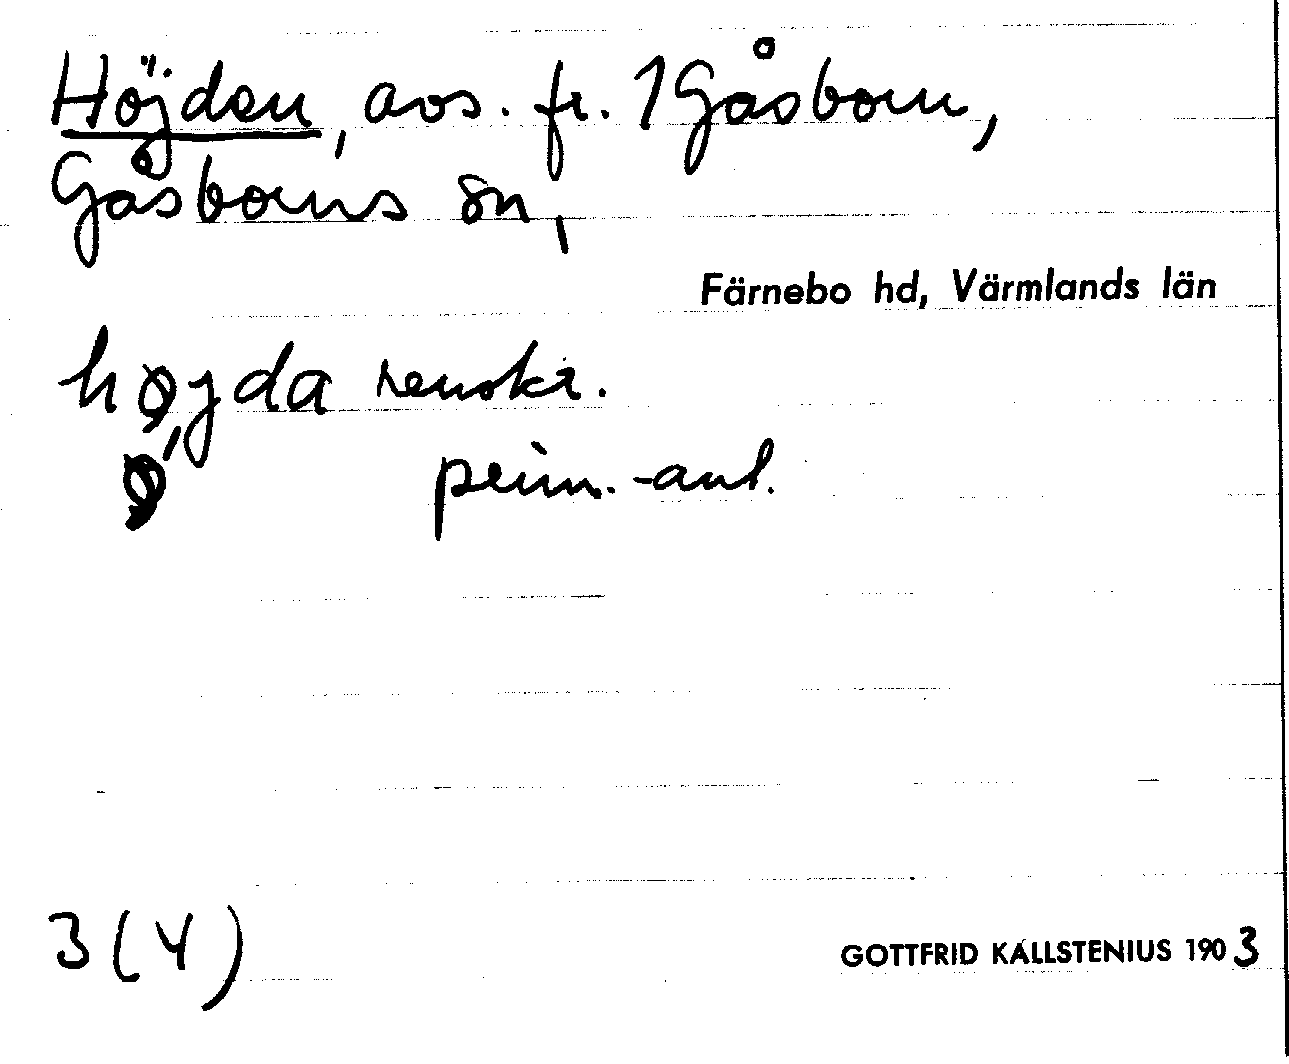 Höjden, avs. fr. 1 Gåsborn,
Gåsborns sn,
Färnebo hd, Värmlands län
højda renskr.
ø prim.-ant.
3 (4)
GOTTFRID KALLSTENIUS 1903